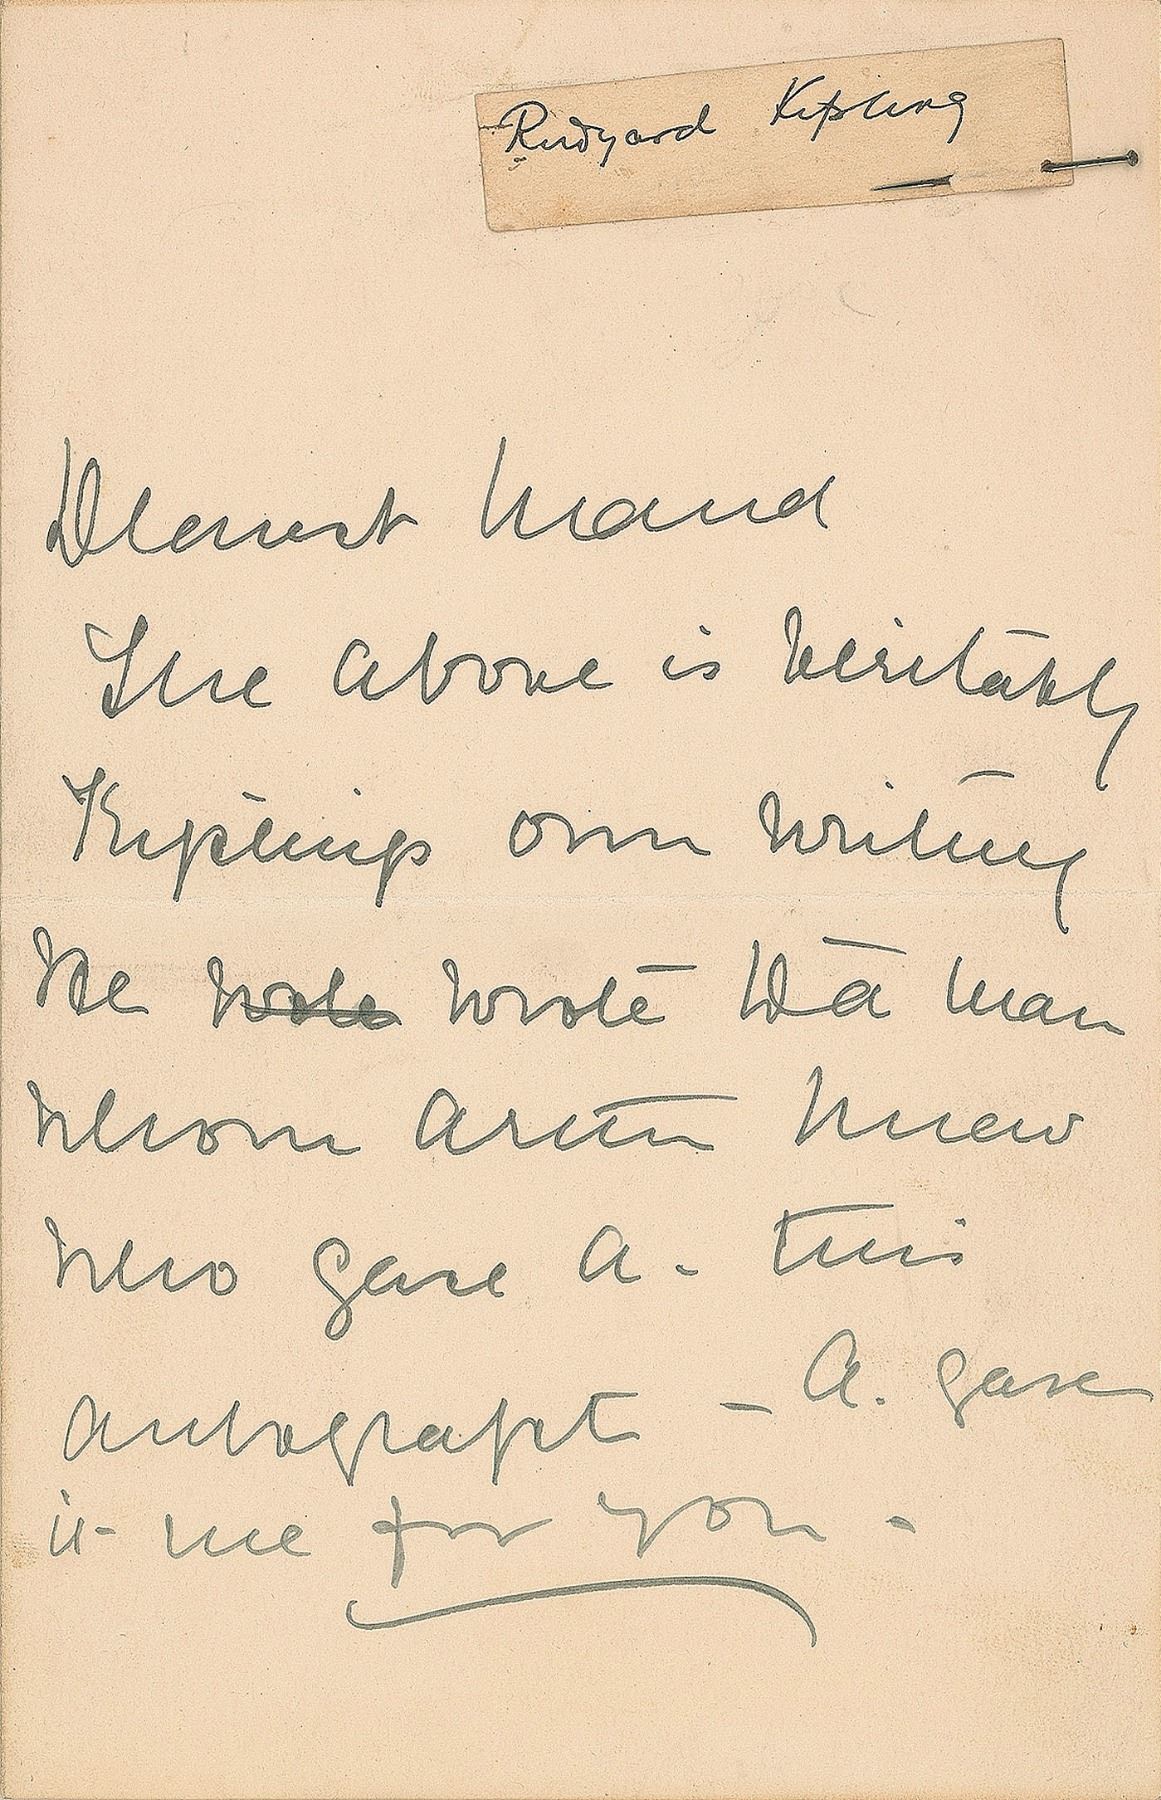 Rudyard Kipling
Dearest Maud
The above is veritably
Kiplings own writing
He wrote wrote to a man
whom Arthur knew
who gave A. this
autograph – A. gave
it me for you –